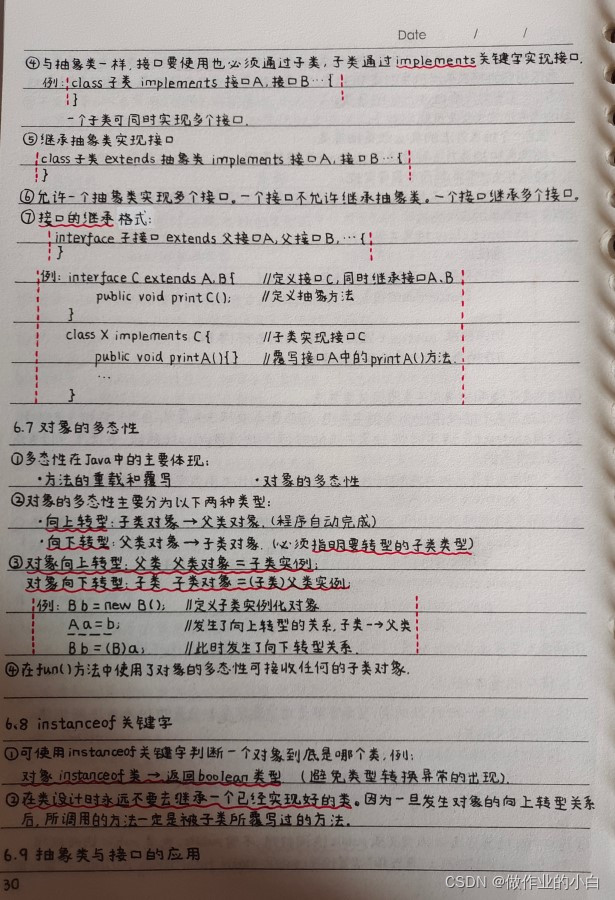 Date / /
④与抽象类一样,接口要使用也必须通过子类,子类通过implements关键字实现接口.
例:class 子类 implements 接口A,接口B…{
}
一个子类可同时实现多个接口.
⑤继承抽象类实现接口
class 子类 extends 抽象类 implements 接口A,接口B…{
}
⑥允许一个抽象类实现多个接口。一个接口不允许继承抽象类。一个接口继承多个接口。
⑦接口的继承格式:
interface 子接口 extends 父接口A,父接口B,…{
}
例: interface C extends A,B{ //定义接口C,同时继承接口A、B
public void printC(); //定义抽象方法
}
class X implements C{ //子类实现接口C
public void printA(){} //覆写接口A中的printA()方法.
…
}
6.7 对象的多态性
①多态性在Java中的主要体现:
·方法的重载和覆写 ·对象的多态性
②对象的多态性主要分为以下两种类型:
·向上转型:子类对象→父类对象.(程序自动完成)
·向下转型:父类对象→子类对象.(必须指明要转型的子类类型)
③对象向上转型:父类 父类对象=子类实例;
对象向下转型:子类 子类对象=(子类)父类实例;
例: B b = new B(); //定义子类实例化对象
A a = b; //发生了向上转型的关系,子类→父类
B b = (B)a; //此时发生了向下转型关系.
④在fun()方法中使用了对象的多态性可接收任何的子类对象.
6.8 instanceof 关键字
①可使用instanceof关键字判断一个对象到底是哪个类,例:
对象 instanceof 类→返回boolean类型 (避免类型转换异常的出现).
②在类设计时永远不要去继承一个已经实现好的类。因为一旦发生对象的向上转型关系
后,所调用的方法一定是被子类所覆写过的方法.
6.9 抽象类与接口的应用
30
CSDN @做作业的小白